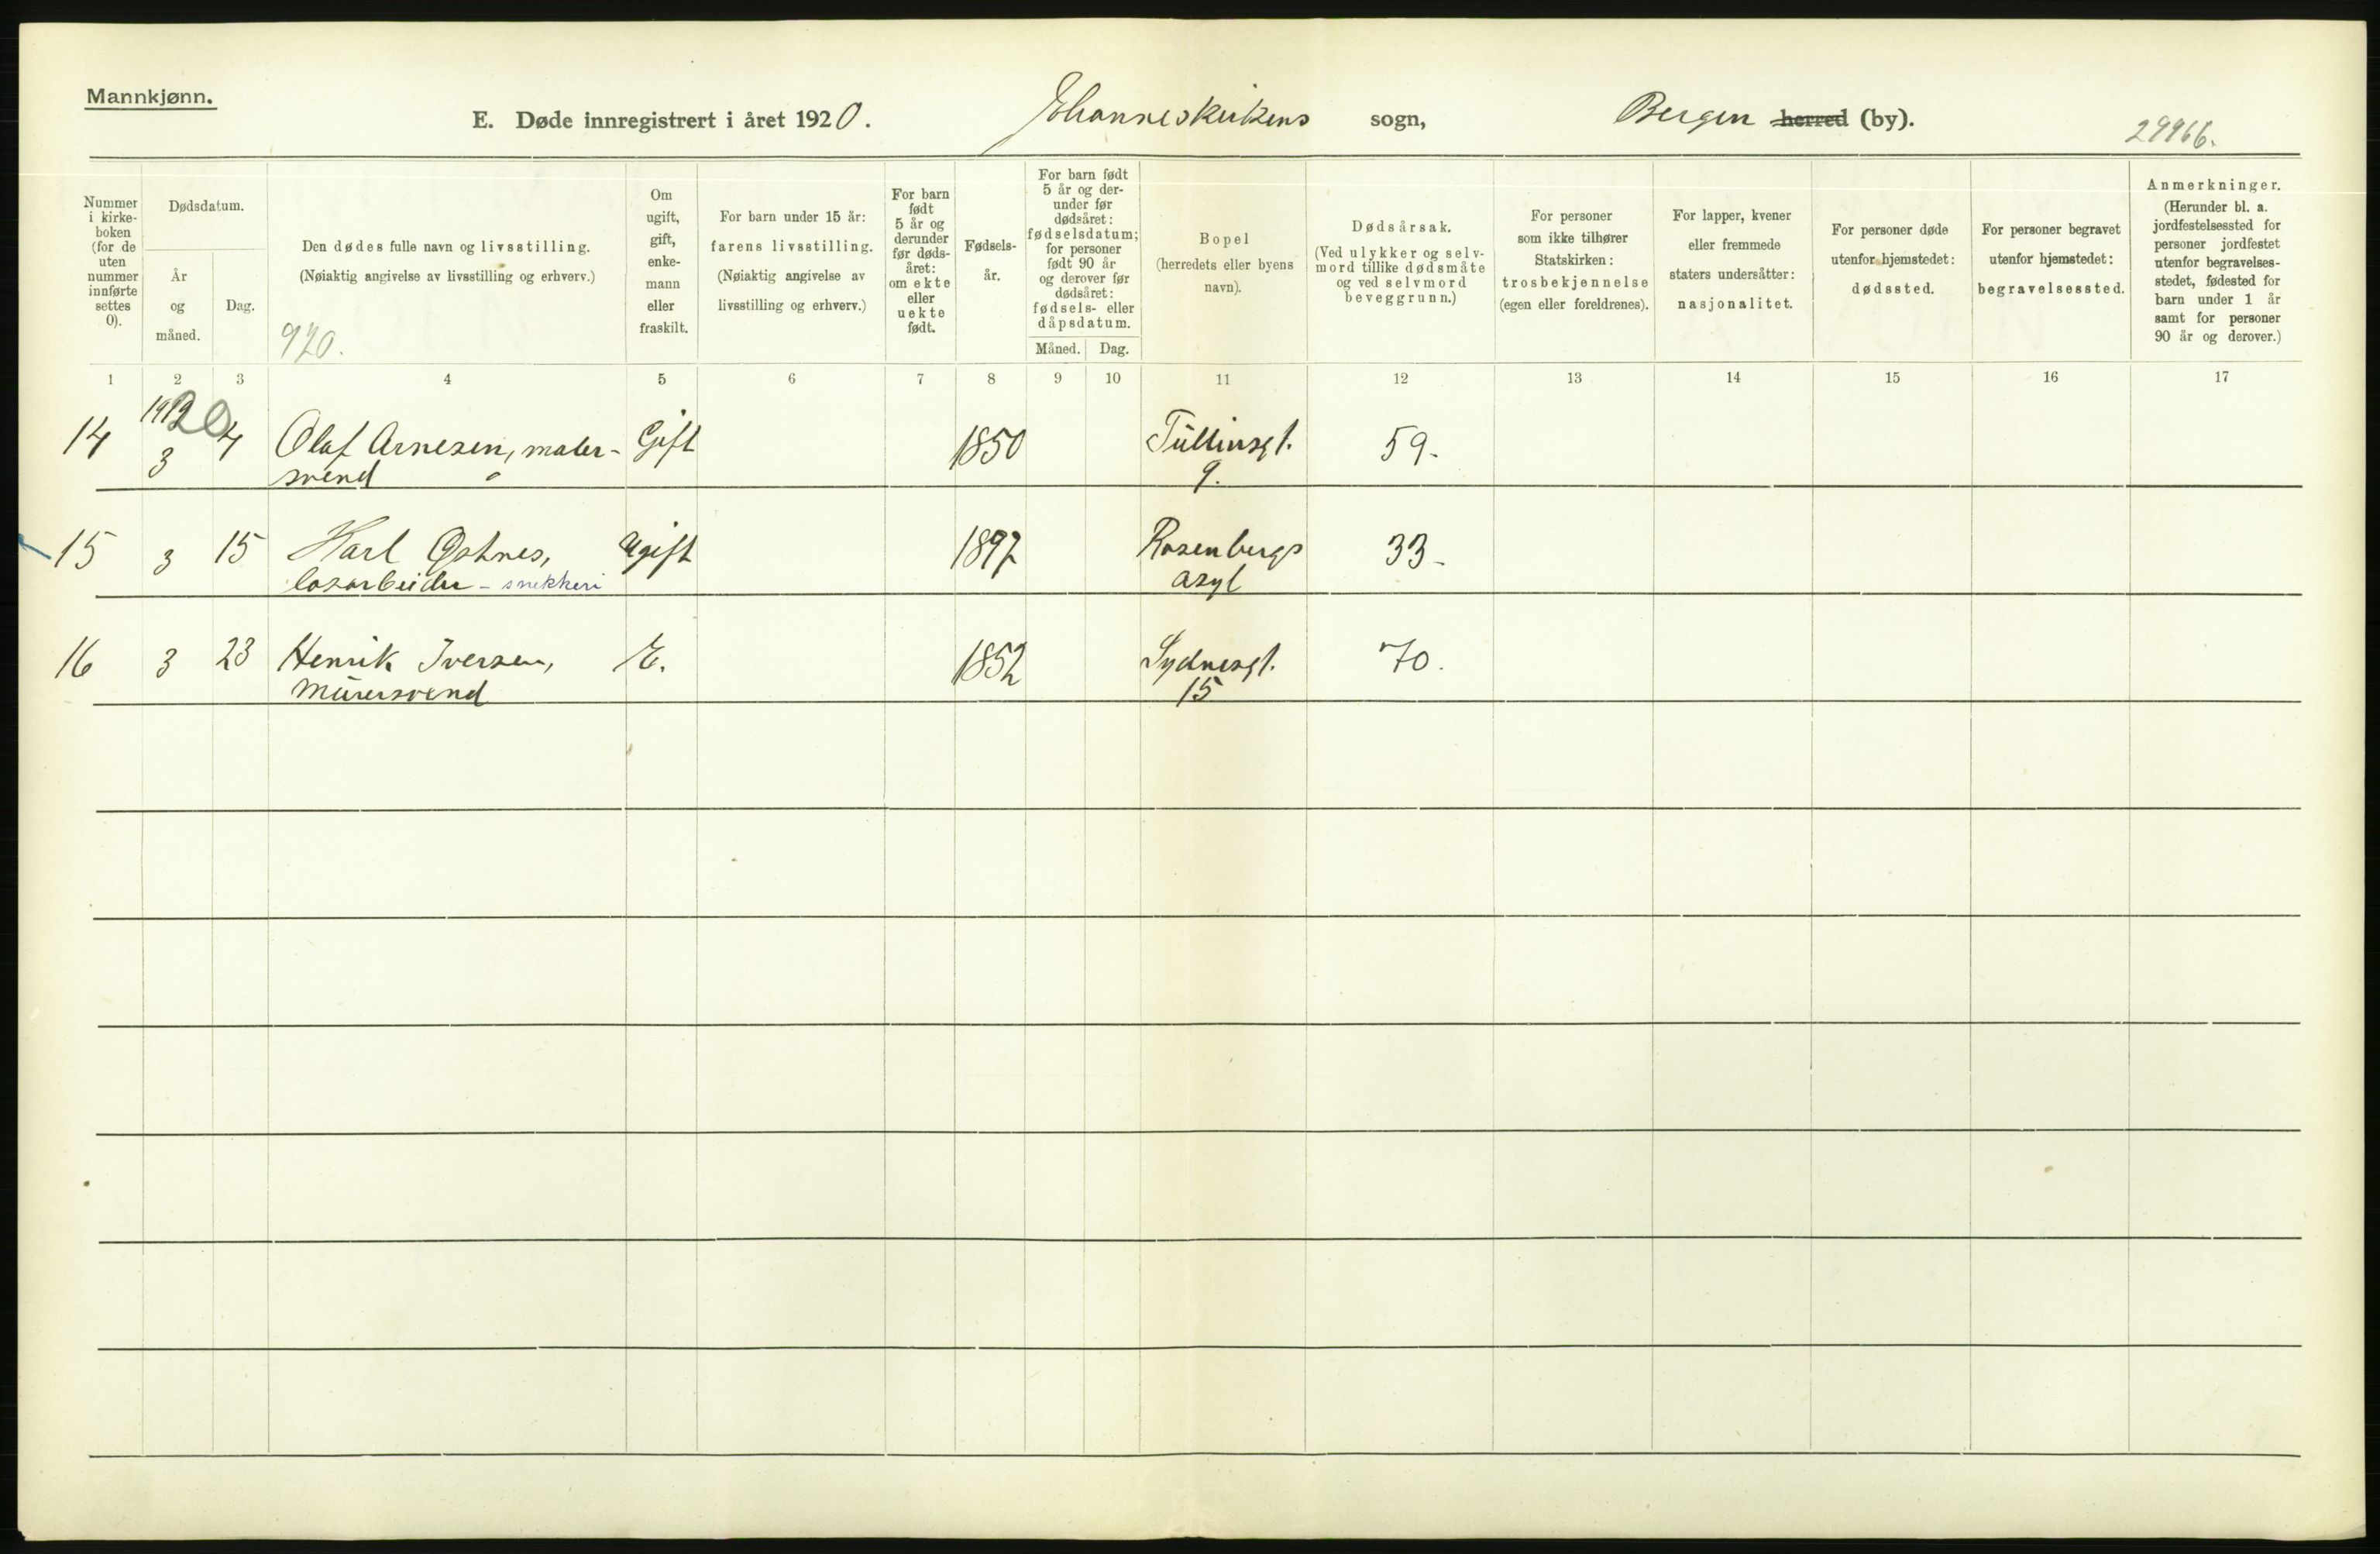 Mannkjønn.
E. Døde innregistrert i året 1920. Johanneskirkens sogn, Bergen herred (by).
29966.
Nummer i kirke- boken (for de uten nummer innførte settes 0).
Dødsdatum.
År og måned.
Dag.
Den dødes fulle navn og livsstilling.
(Nøiaktig angivelse av livsstilling og erhverv.)
920.
Om ugift, gift, enke- mann eller fraskilt.
For barn under 15 år:
farens livsstilling.
(Nøiaktig angivelse av
livsstilling og erhverv.)
For barn født 5 år og derunder før døds- året: om ekte eller uekte født.
Fødsels- år.
For barn født 5 år og der- under før dødsåret: fødselsdatum; for personer født 90 år og derover før dødsåret: fødsels- eller dåpsdatum.
Måned. Dag.
Bopel
(herredets eller byens
navn).
Dødsårsak.
(Ved ulykker og selv-
mord tillike dødsmåte
og ved selvmord
beveggrunn.)
For personer
som ikke tilhører
Statskirken:
trosbekjennelse
(egen eller foreldrenes).
For lapper, kvener
eller fremmede
staters undersåtter:
nasjonalitet.
For personer døde
utenfor hjemstedet:
dødssted.
For personer begravet
utenfor hjemstedet:
begravelsessted.
Anmerkninger.
(Herunder bl. a.
jordfestelsessted for
personer jordfestet
utenfor begravelses-
stedet, fødested for
barn under 1 år
samt for personer
90 år og derover.)
1 2 3 4 5 6 7 8 9 10 11 12 13 14 15 16 17
20
14 3 4 Olaf Arnesen, maler- Gift 1850 Tullinsgt. 59.
svend 9.
15 3 15 Karl Ostnes, Ugift 1897 Rosenbergs 33.
løsarbeider - snekkeri asyl
16 3 23 Henrik Iversen, E. 1852 Sydnesgt. 70.
murersvend 15